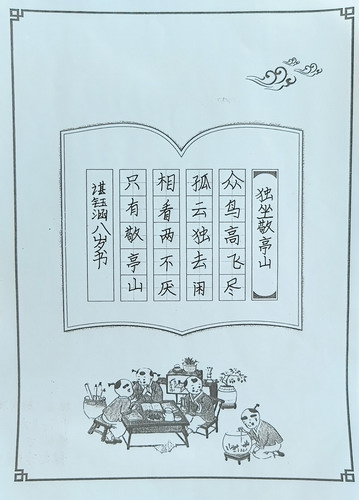 独坐敬亭山
众鸟高飞尽
孤云独去闲
相看两不厌
只有敬亭山
湛钰涵八岁书